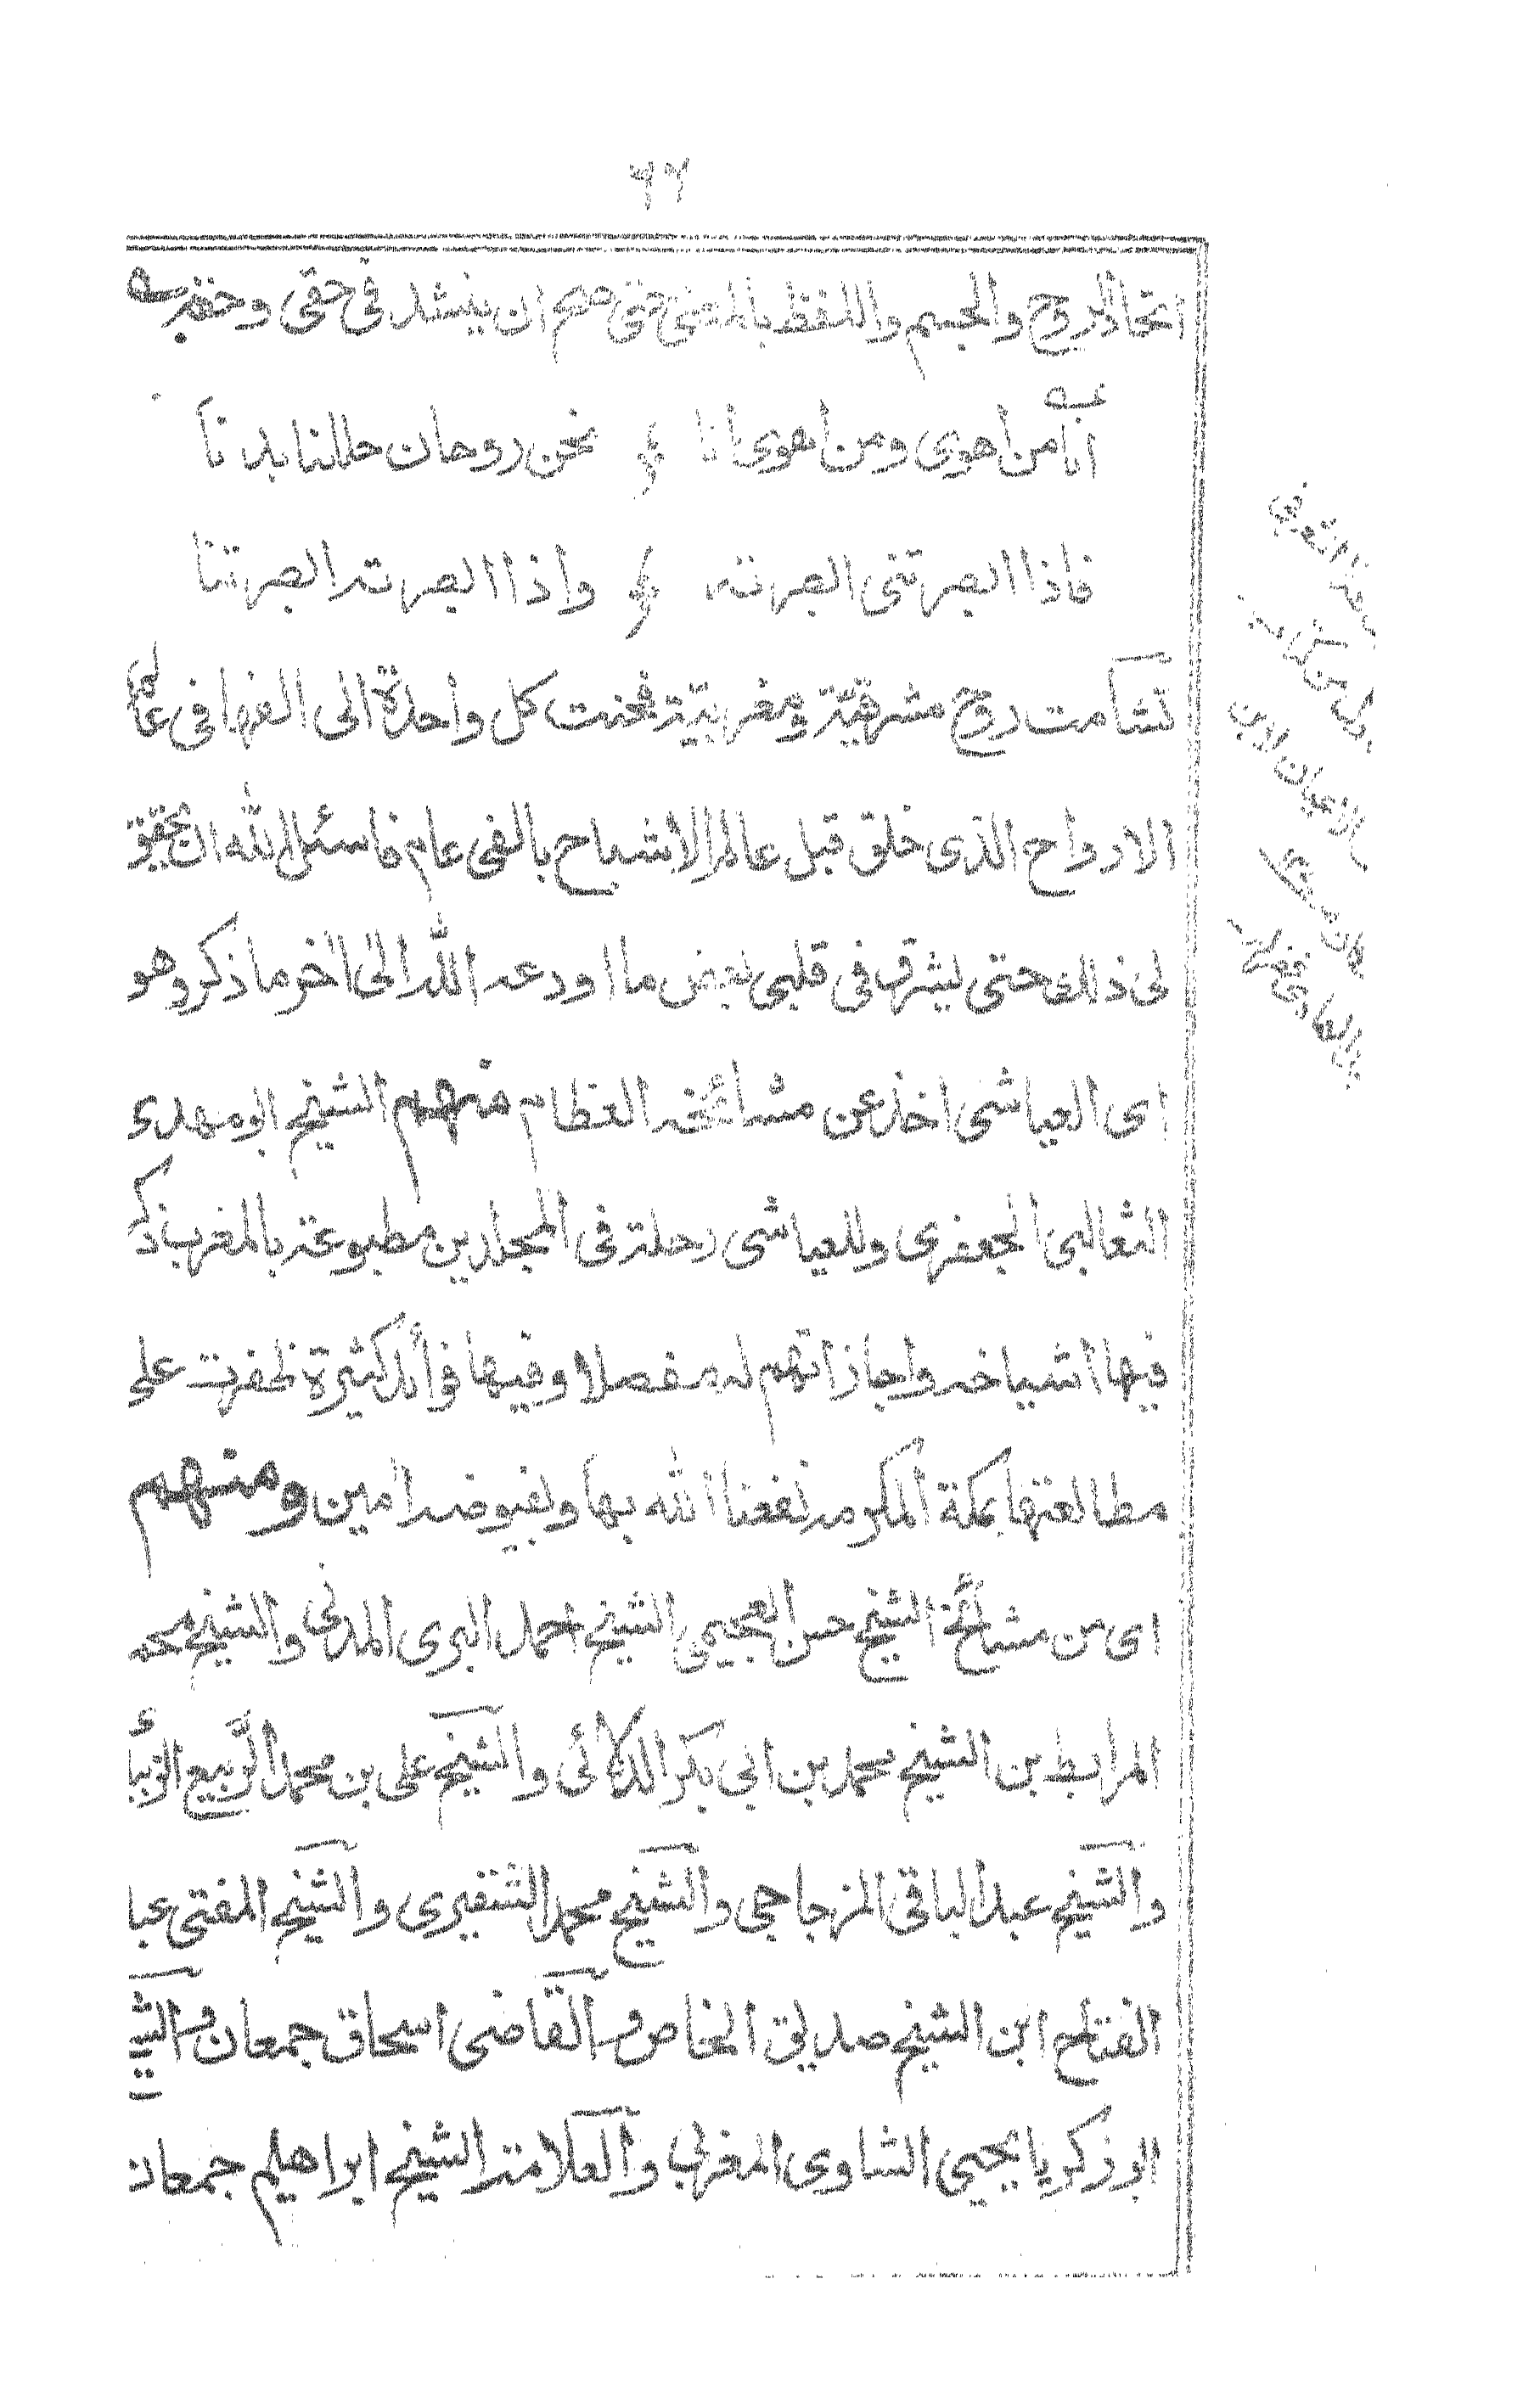 ٦٦
اتحاد الروح والجسم واللفظ بالمعنى حتى صح ان ينشد في حقى وحقه
انا من اهوى ومن اهوى انا نحن روحان حللنا بدنا
فاذا ابصرتنى ابصرته واذا ابصرته ابصرتنا
تشامت روح مشرقية ومغربية فحنت كل واحدة الى الفها فى عالم
الارواح الذى خلق قبل عالم الاشباح بالفى عام فاسئل الله ان يحقق
لى ذلك حتى يشرق فى قلبى بعض ما اودعه الله الى اخر ما ذكر وهو
اى العياشى اخذ عن مشائخه العظام منهم الشيخ ابو مهدى
الثعالبى الجعفرى وللعياشى رحلة فى المجلدين مطبوعة بالمغرب ذكر
فيها اشياخه واجازاتهم له مفصلا وفيها فوائد كثيرة ظفرت على
مطالعتها بمكة المكرمه نفعنا الله بها وبفيوضه امين ومنهم
اى من مشائخ الشيخ حسن العجيمى الشيخ احمد البرى المدنى والشيخ محمد
المرابط بن الشيخ محمد بن ابى بكر الدلائى والشيخ على بن محمد الربيع الزبيدى
والشيخ عبد الباقى المزجاجى والشيخ محمد الشنقيرى والشيخ المفتى عبد
الفتاح ابن الشيخ صديق الخاص والقاضى اسحاق جمعان والشيخ
ابو زكريا يحيى الشاوى المغربى والعلامة الشيخ ابراهيم جمعان